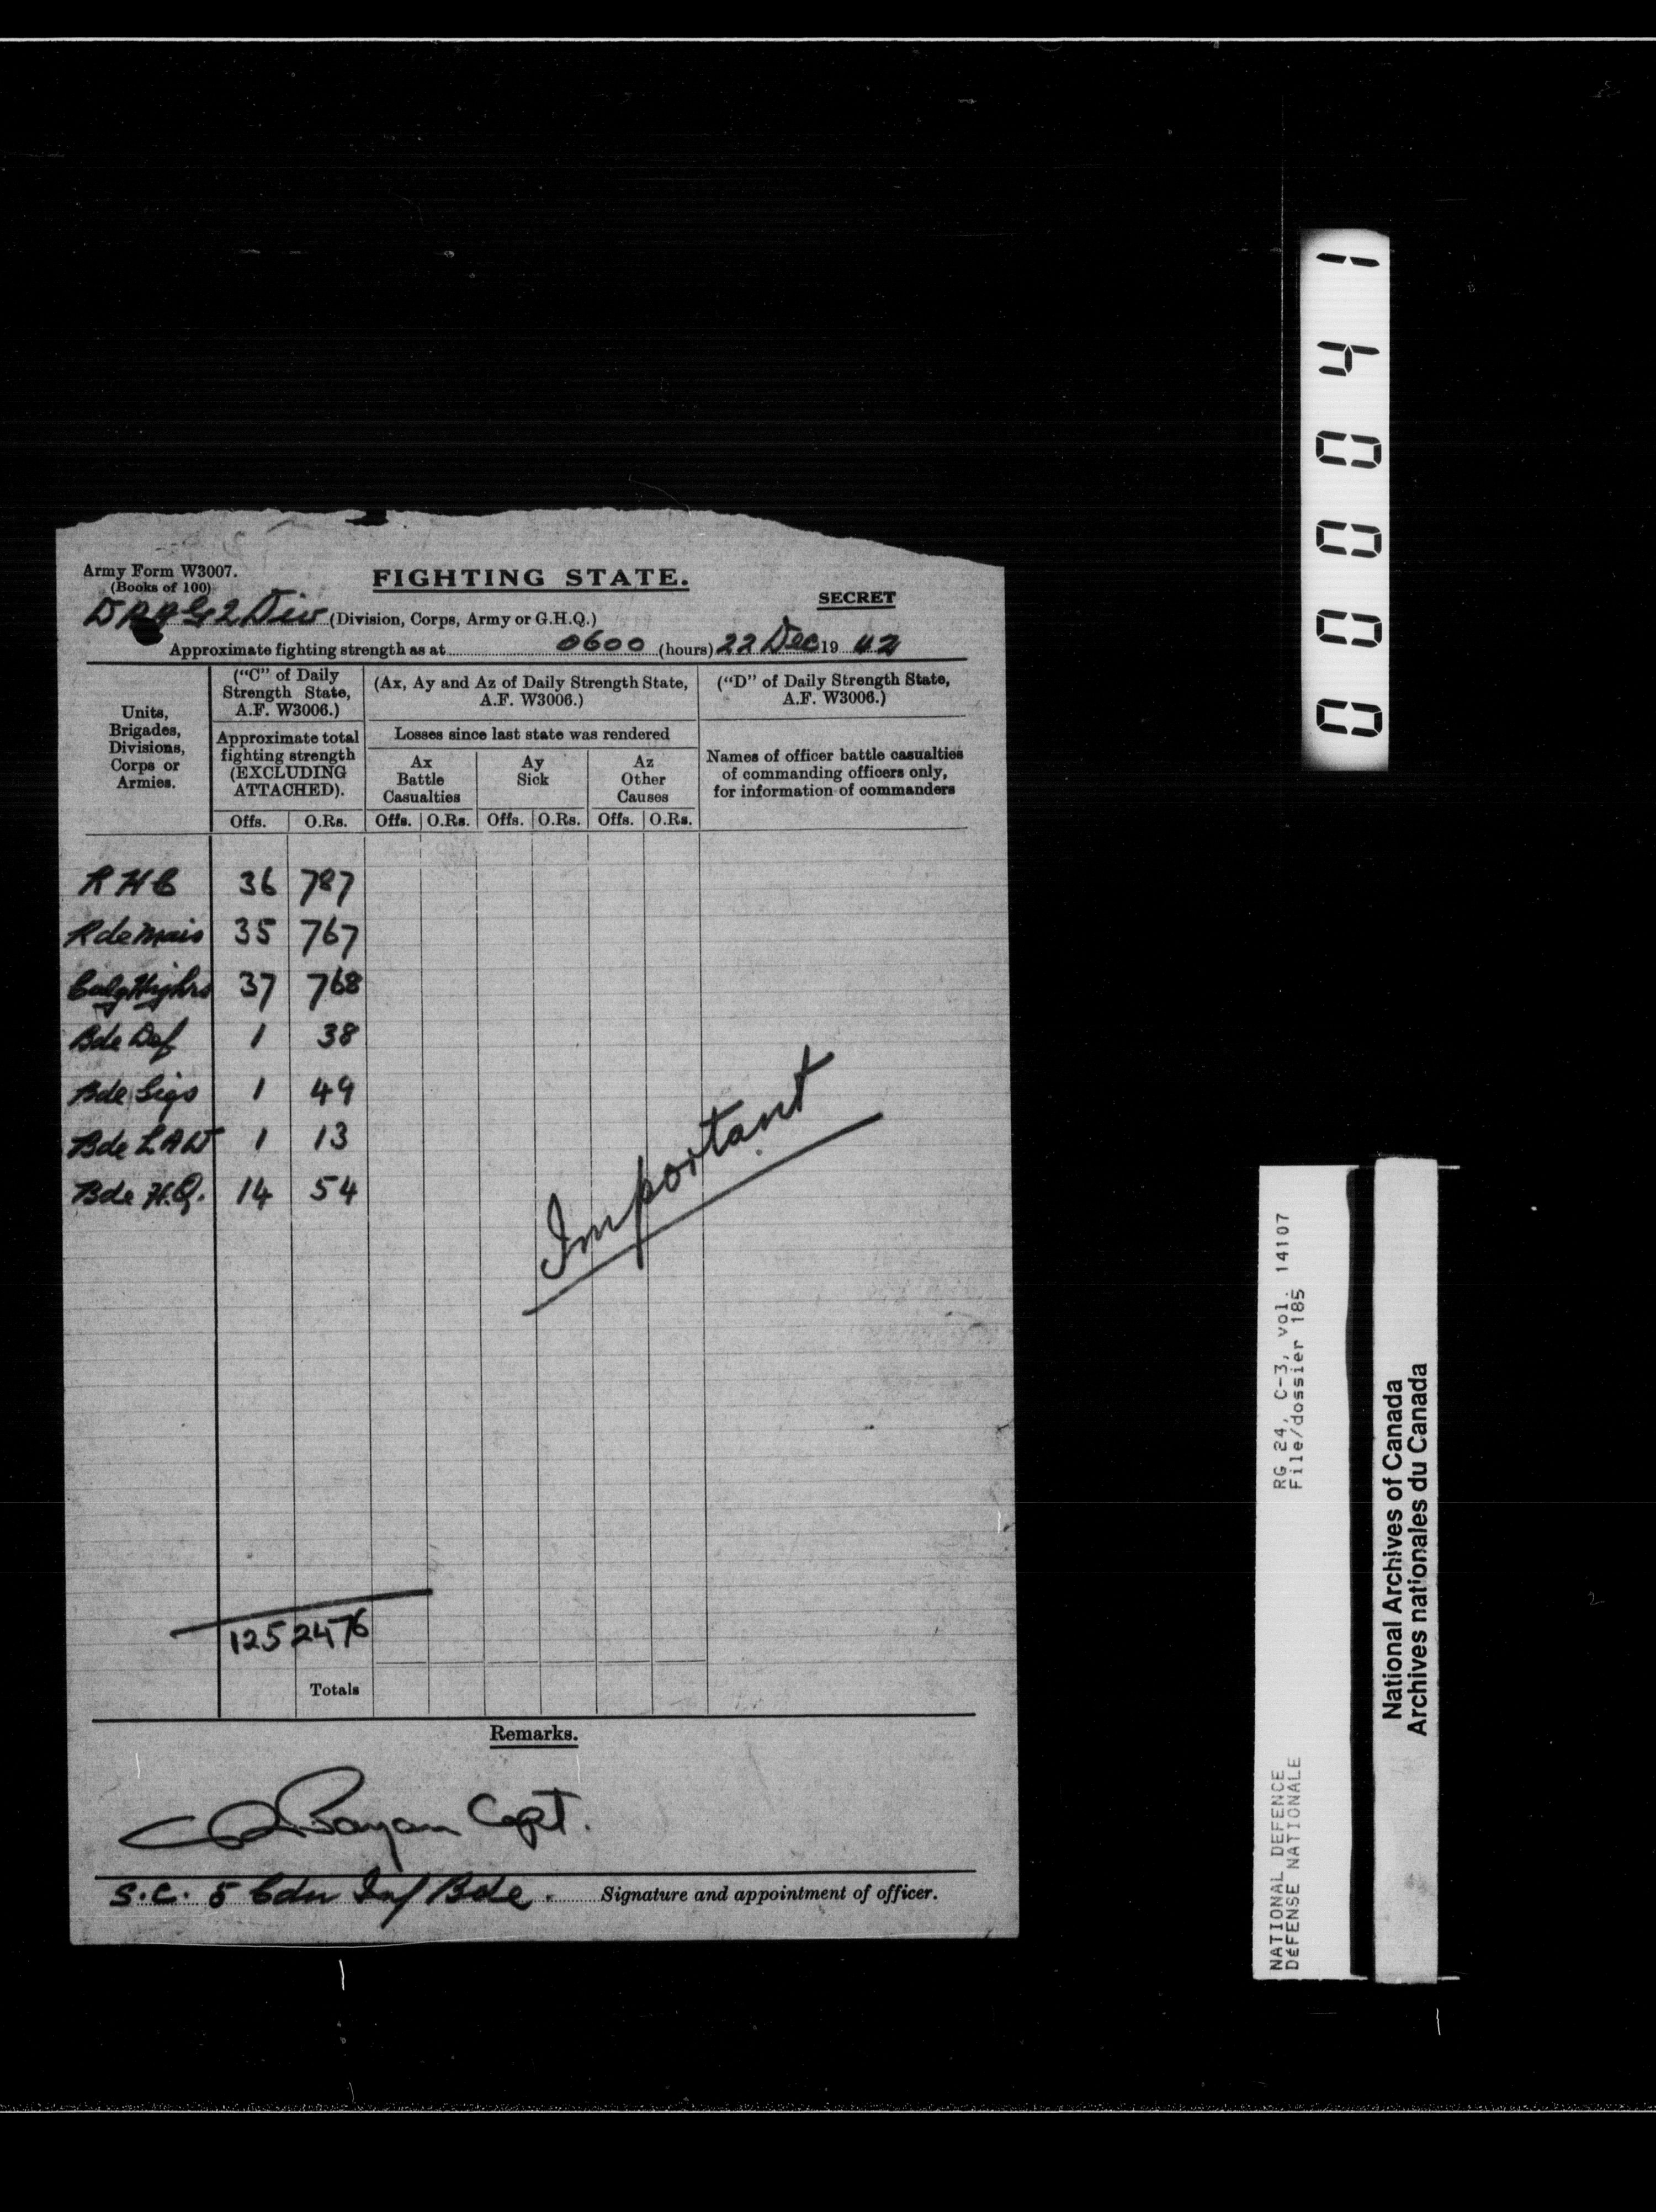 Army Form W3007.
(Books of 100)
FIGHTING STATE.
SECRET
2 Div (Division, Corps, Army or G.H.Q.)
Approximate fighting strength as at 0600 (hours) 22 Dec 19 42
Units, Brigades, Divisions, Corps or Armies.
("C" of Daily Strength State, A.F. W3006.)
Approximate total fighting strength (EXCLUDING ATTACHED).
(Ax, Ay and Az of Daily Strength State, A.F. W3006.)
Losses since last state was rendered
Ax Battle Casualties
Ay Sick
Az Other Causes
("D" of Daily Strength State, A.F. W3006.)
Names of officer battle casualties of commanding officers only, for information of commanders
Offs. O.Rs. Offs. O.Rs. Offs. O.Rs. Offs. O.Rs.
R H C 36 787
R de Mais 35 767
Calg Highrs 37 768
Bde Def 1 38
Bde Sigs 1 49
Bde LAD 1 13
Bde H.Q. 14 54
Important
125 2476
Totals
Remarks.
Capt.
S.C. 5 Cdn Inf Bde. Signature and appointment of officer.
000041
NATIONAL DEFENCE RG 24, C-3, vol. 14107
DÉFENSE NATIONALE File/dossier 185
National Archives of Canada
Archives nationales du Canada